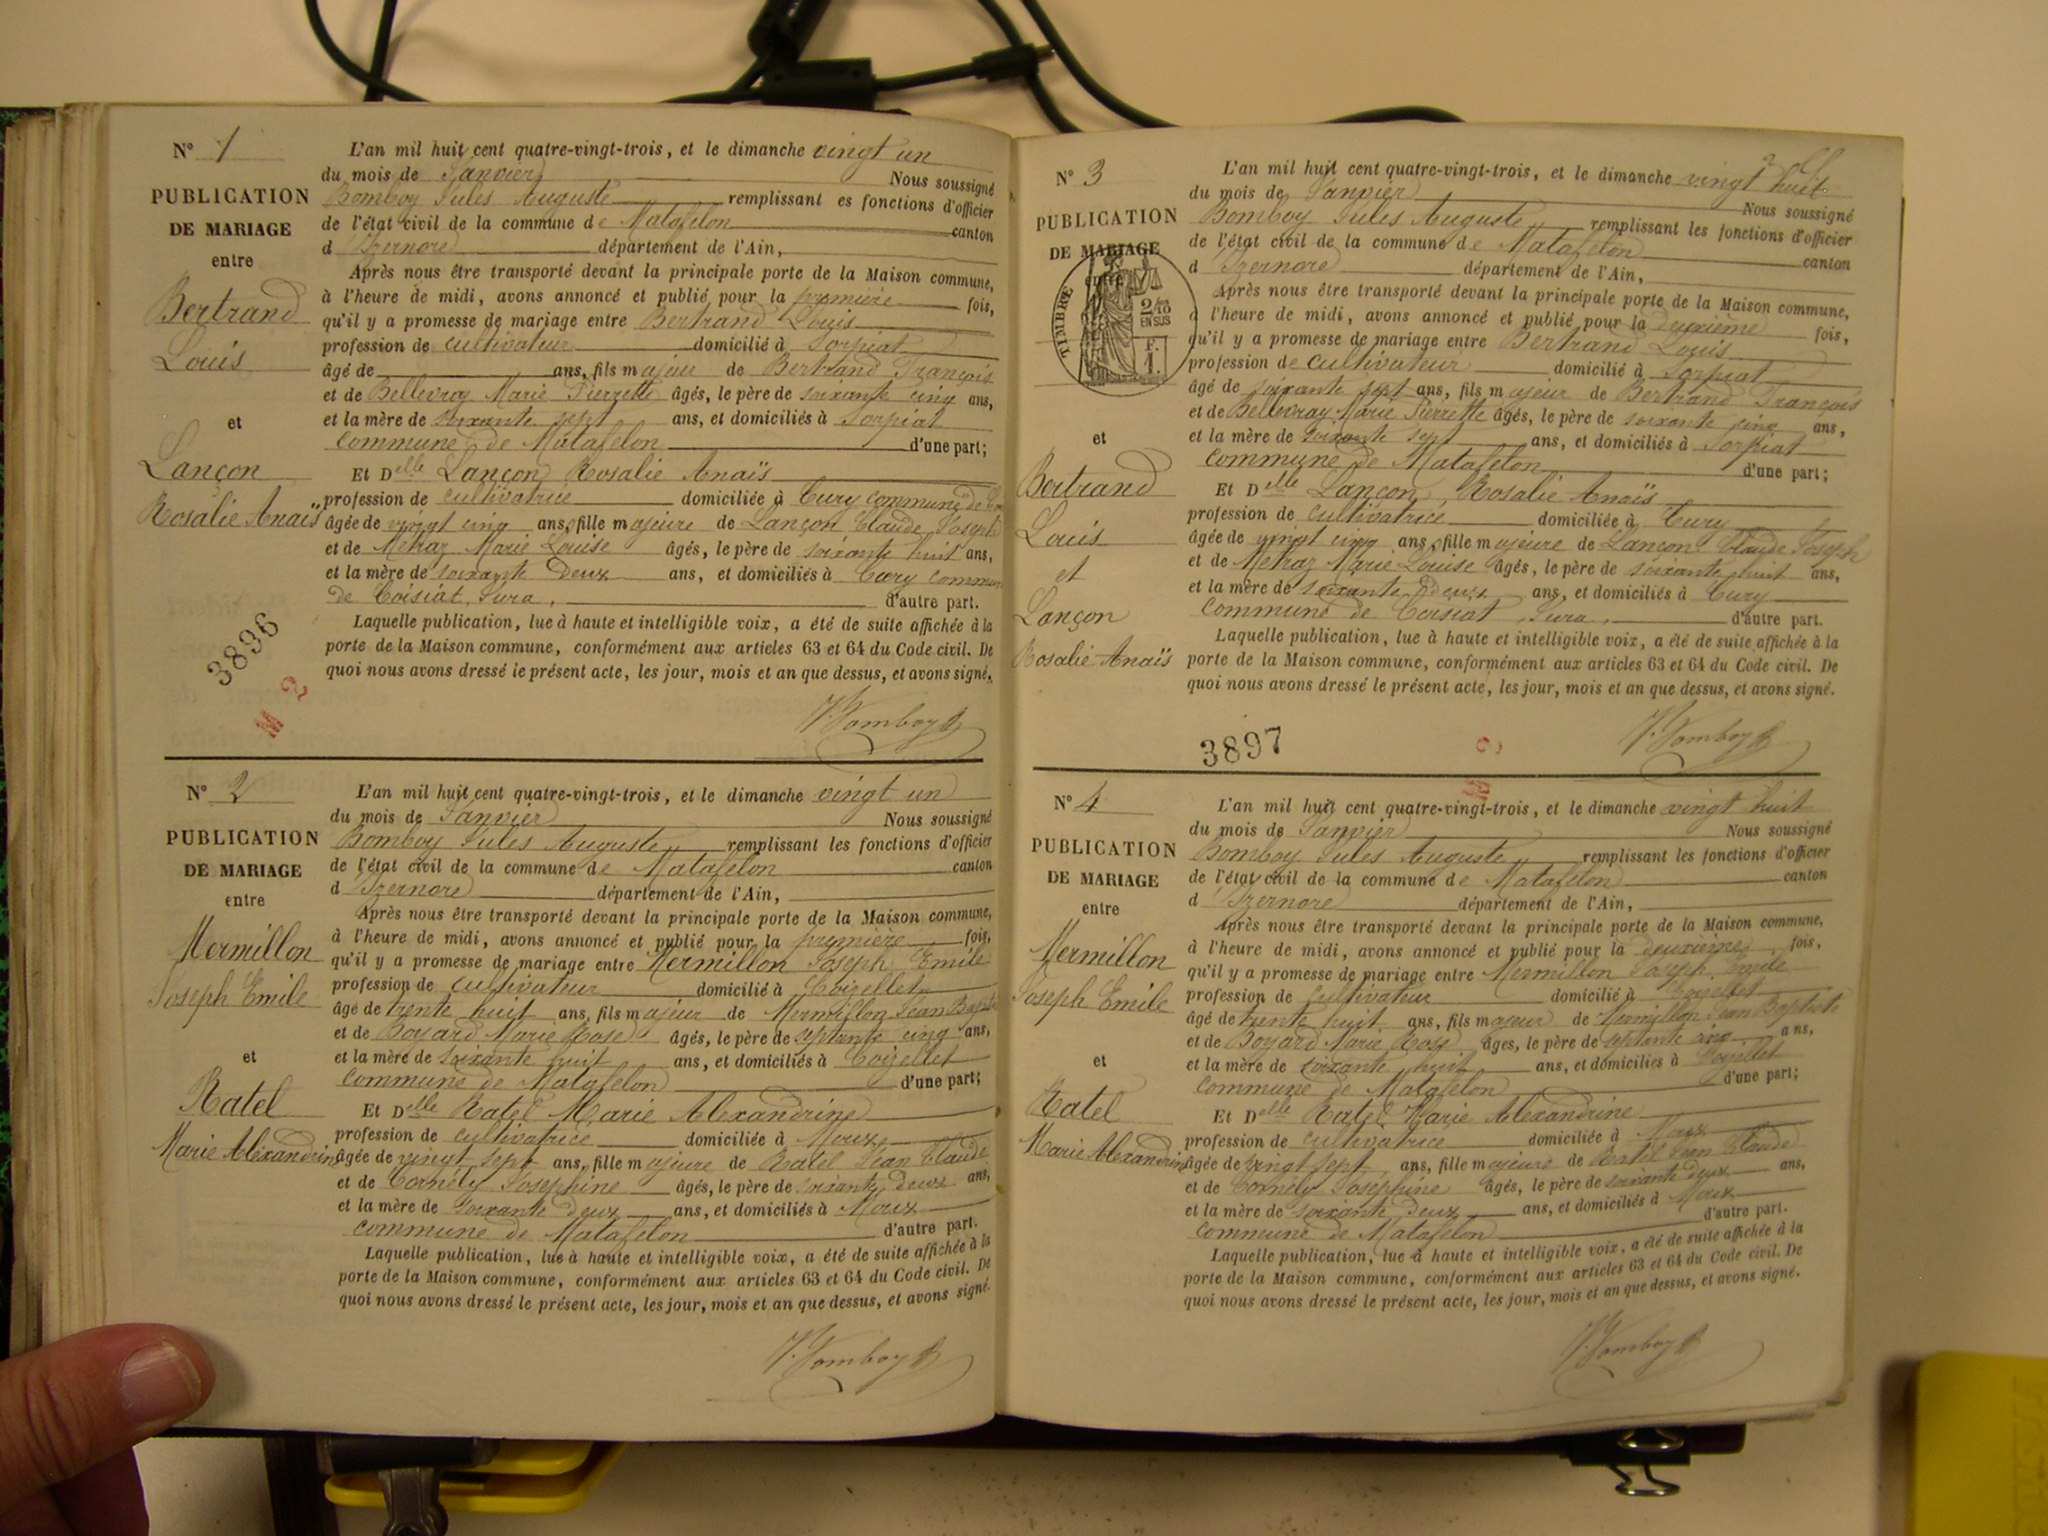 N° 1
PUBLICATION
DE MARIAGE
entre
Bertrand
Louis
et
Lançon
Rosalie Anaïs
3896
M 2
L'an mil huit cent quatre-vingt-trois, et le dimanche vingt un
du mois de Janvier Nous soussigné
Bomboy Jules Auguste remplissant es fonctions d'officier
de l'état civil de la commune de Matafelon canton
d Izernore département de l'Ain,
Après nous être transporté devant la principale porte de la Maison commune,
à l'heure de midi, avons annoncé et publié pour la première fois,
qu'il y a promesse de mariage entre Bertrand Louis
profession de cultivateur domicilié à Sorpiat
âgé de ans, fils majeur de Bertrand François
et de Bellevray Marie Pierrette âgés, le père de soixante cinq ans,
et la mère de soixante sept ans, et domiciliés à Sorpiat
commune de Matafelon d'une part;
Et Delle Lançon Rosalie Anaïs
profession de cultivatrice domiciliée à Cury commune de
âgée de vingt cinq ans, fille majeure de Lançon Claude Joseph
et de Metraz Marie Louise âgés, le père de soixante huit ans,
et la mère de soixante deux ans, et domiciliés à Cury commune
de Coisiat, Jura, d'autre part.
Laquelle publication, lue à haute et intelligible voix, a été de suite affichée à la
porte de la Maison commune, conformément aux articles 63 et 64 du Code civil. De
quoi nous avons dressé le présent acte, les jour, mois et an que dessus, et avons signé.
J. Bomboy
N° 2
PUBLICATION
DE MARIAGE
entre
Mermillon
Joseph Emile
et
Ratel
Marie Alexandrine
L'an mil huit cent quatre-vingt-trois, et le dimanche vingt un
du mois de Janvier Nous soussigné
Bomboy Jules Auguste remplissant les fonctions d'officier
de l'état civil de la commune de Matafelon canton
d Izernore département de l'Ain,
Après nous être transporté devant la principale porte de la Maison commune,
à l'heure de midi, avons annoncé et publié pour la première fois,
qu'il y a promesse de mariage entre Mermillon Joseph Emile
profession de cultivateur domicilié à Coizellet
âgé de trente huit ans, fils majeur de Mermillon Jean Baptiste
et de Boyard Marie Rose âgés, le père de septante cinq ans,
et la mère de soixante huit ans, et domiciliés à Coizellet
commune de Matafelon d'une part;
Et Delle Ratel Marie Alexandrine
profession de cultivatrice domiciliée à Moux
âgée de vingt sept ans, fille majeure de Ratel Jean Claude
et de Cornély Josephine âgés, le père de soixante deux ans,
et la mère de soixante deux ans, et domiciliés à Moux
commune de Matafelon d'autre part.
Laquelle publication, lue à haute et intelligible voix, a été de suite affichée à la
porte de la Maison commune, conformément aux articles 63 et 64 du Code civil. De
quoi nous avons dressé le présent acte, les jour, mois et an que dessus, et avons signé.
J. Bomboy
N° 3
PUBLICATION
DE MARIAGE
entre
TIMBRE
2/10
EN SUS
F.
1.
et
Bertrand
Louis
et
Lançon
Rosalie Anaïs
L'an mil huit cent quatre-vingt-trois, et le dimanche vingt huit
du mois de Janvier Nous soussigné
Bomboy Jules Auguste remplissant les fonctions d'officier
de l'état civil de la commune de Matafelon canton
d Izernore département de l'Ain,
Après nous être transporté devant la principale porte de la Maison commune,
à l'heure de midi, avons annoncé et publié pour la deuxième fois,
qu'il y a promesse de mariage entre Bertrand Louis
profession de cultivateur domicilié à Sorpiat
âgé de soixante sept ans, fils majeur de Bertrand François
et de Bellevray Marie Pierrette âgés, le père de soixante cinq ans,
et la mère de soixante sept ans, et domiciliés à Sorpiat
commune de Matafelon d'une part;
Et Delle Lançon Rosalie Anaïs
profession de cultivatrice domiciliée à Cury
âgée de vingt cinq ans, fille majeure de Lançon Claude Joseph
et de Metraz Marie Louise âgés, le père de soixante huit ans,
et la mère de soixante deux ans, et domiciliés à Cury
commune de Coisiat, Jura, d'autre part.
Laquelle publication, lue à haute et intelligible voix, a été de suite affichée à la
porte de la Maison commune, conformément aux articles 63 et 64 du Code civil. De
quoi nous avons dressé le présent acte, les jour, mois et an que dessus, et avons signé.
J. Bomboy
3897
M 2
N° 4
PUBLICATION
DE MARIAGE
entre
Mermillon
Joseph Emile
et
Ratel
Marie Alexandrine
L'an mil huit cent quatre-vingt-trois, et le dimanche vingt huit
du mois de Janvier Nous soussigné
Bomboy Jules Auguste remplissant les fonctions d'officier
de l'état civil de la commune de Matafelon canton
d Izernore département de l'Ain,
Après nous être transporté devant la principale porte de la Maison commune,
à l'heure de midi, avons annoncé et publié pour la deuxième fois,
qu'il y a promesse de mariage entre Mermillon Joseph Emile
profession de cultivateur domicilié à Coyellet
âgé de trente huit ans, fils majeur de Mermillon Jean Baptiste
et de Boyard Marie Rose âgés, le père de septante cinq ans,
et la mère de soixante huit ans, et domiciliés à Coyellet
commune de Matafelon d'une part;
Et Delle Ratel Marie Alexandrine
profession de cultivatrice domiciliée à Moux
âgée de vingt sept ans, fille majeure de Ratel Jean Claude
et de Cornély Josephine âgés, le père de soixante deux ans,
et la mère de soixante deux ans, et domiciliés à Moux
commune de Matafelon d'autre part.
Laquelle publication, lue à haute et intelligible voix, a été de suite affichée à la
porte de la Maison commune, conformément aux articles 63 et 64 du Code civil. De
quoi nous avons dressé le présent acte, les jour, mois et an que dessus, et avons signé.
J. Bomboy